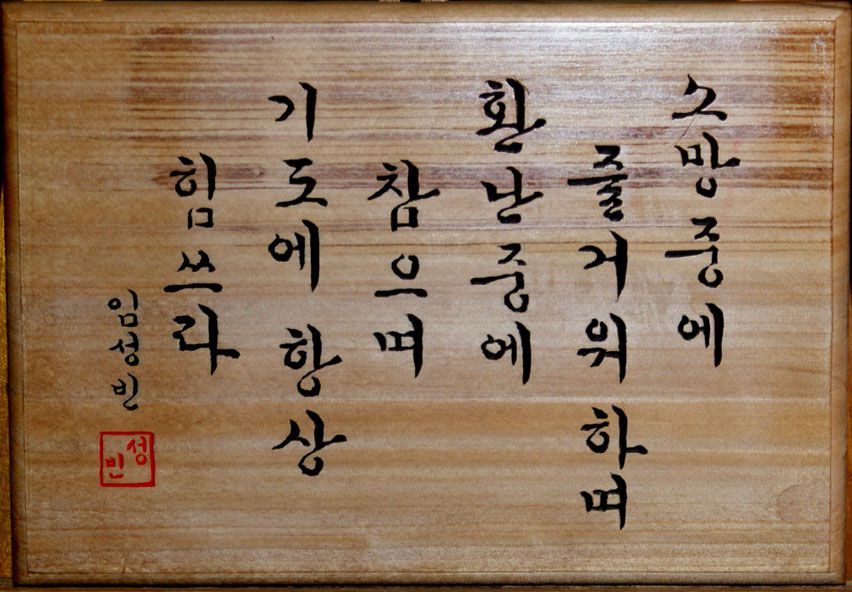 소망중에
줄거워하며
환난중에
참으며
기도에 항상
힘쓰라
임성빈
성빈